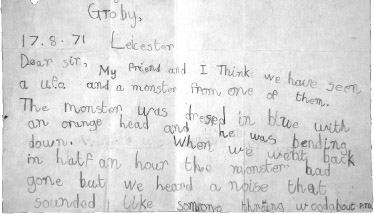 Groby,
17.8.71 Leicester
Dear sir,
My friend and I Think we have seen
a ufo and a monster from one of them.
The monster was dresed in blue with
an orange head and he was bending
down. When we went back
in half an hour the monster had
gone but we heard a noise that
sounded like someone